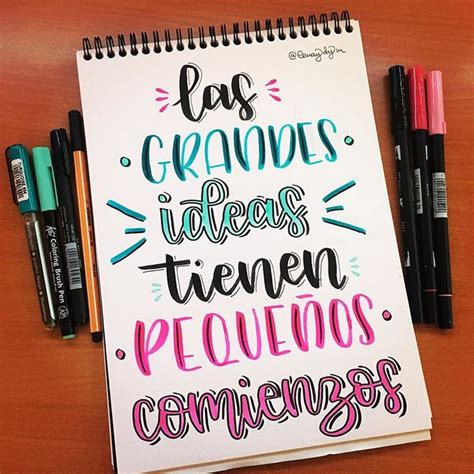 las
GRANDES
ideas
tienen
PEQUEÑOS
comienzos
Coloring Brush Pen